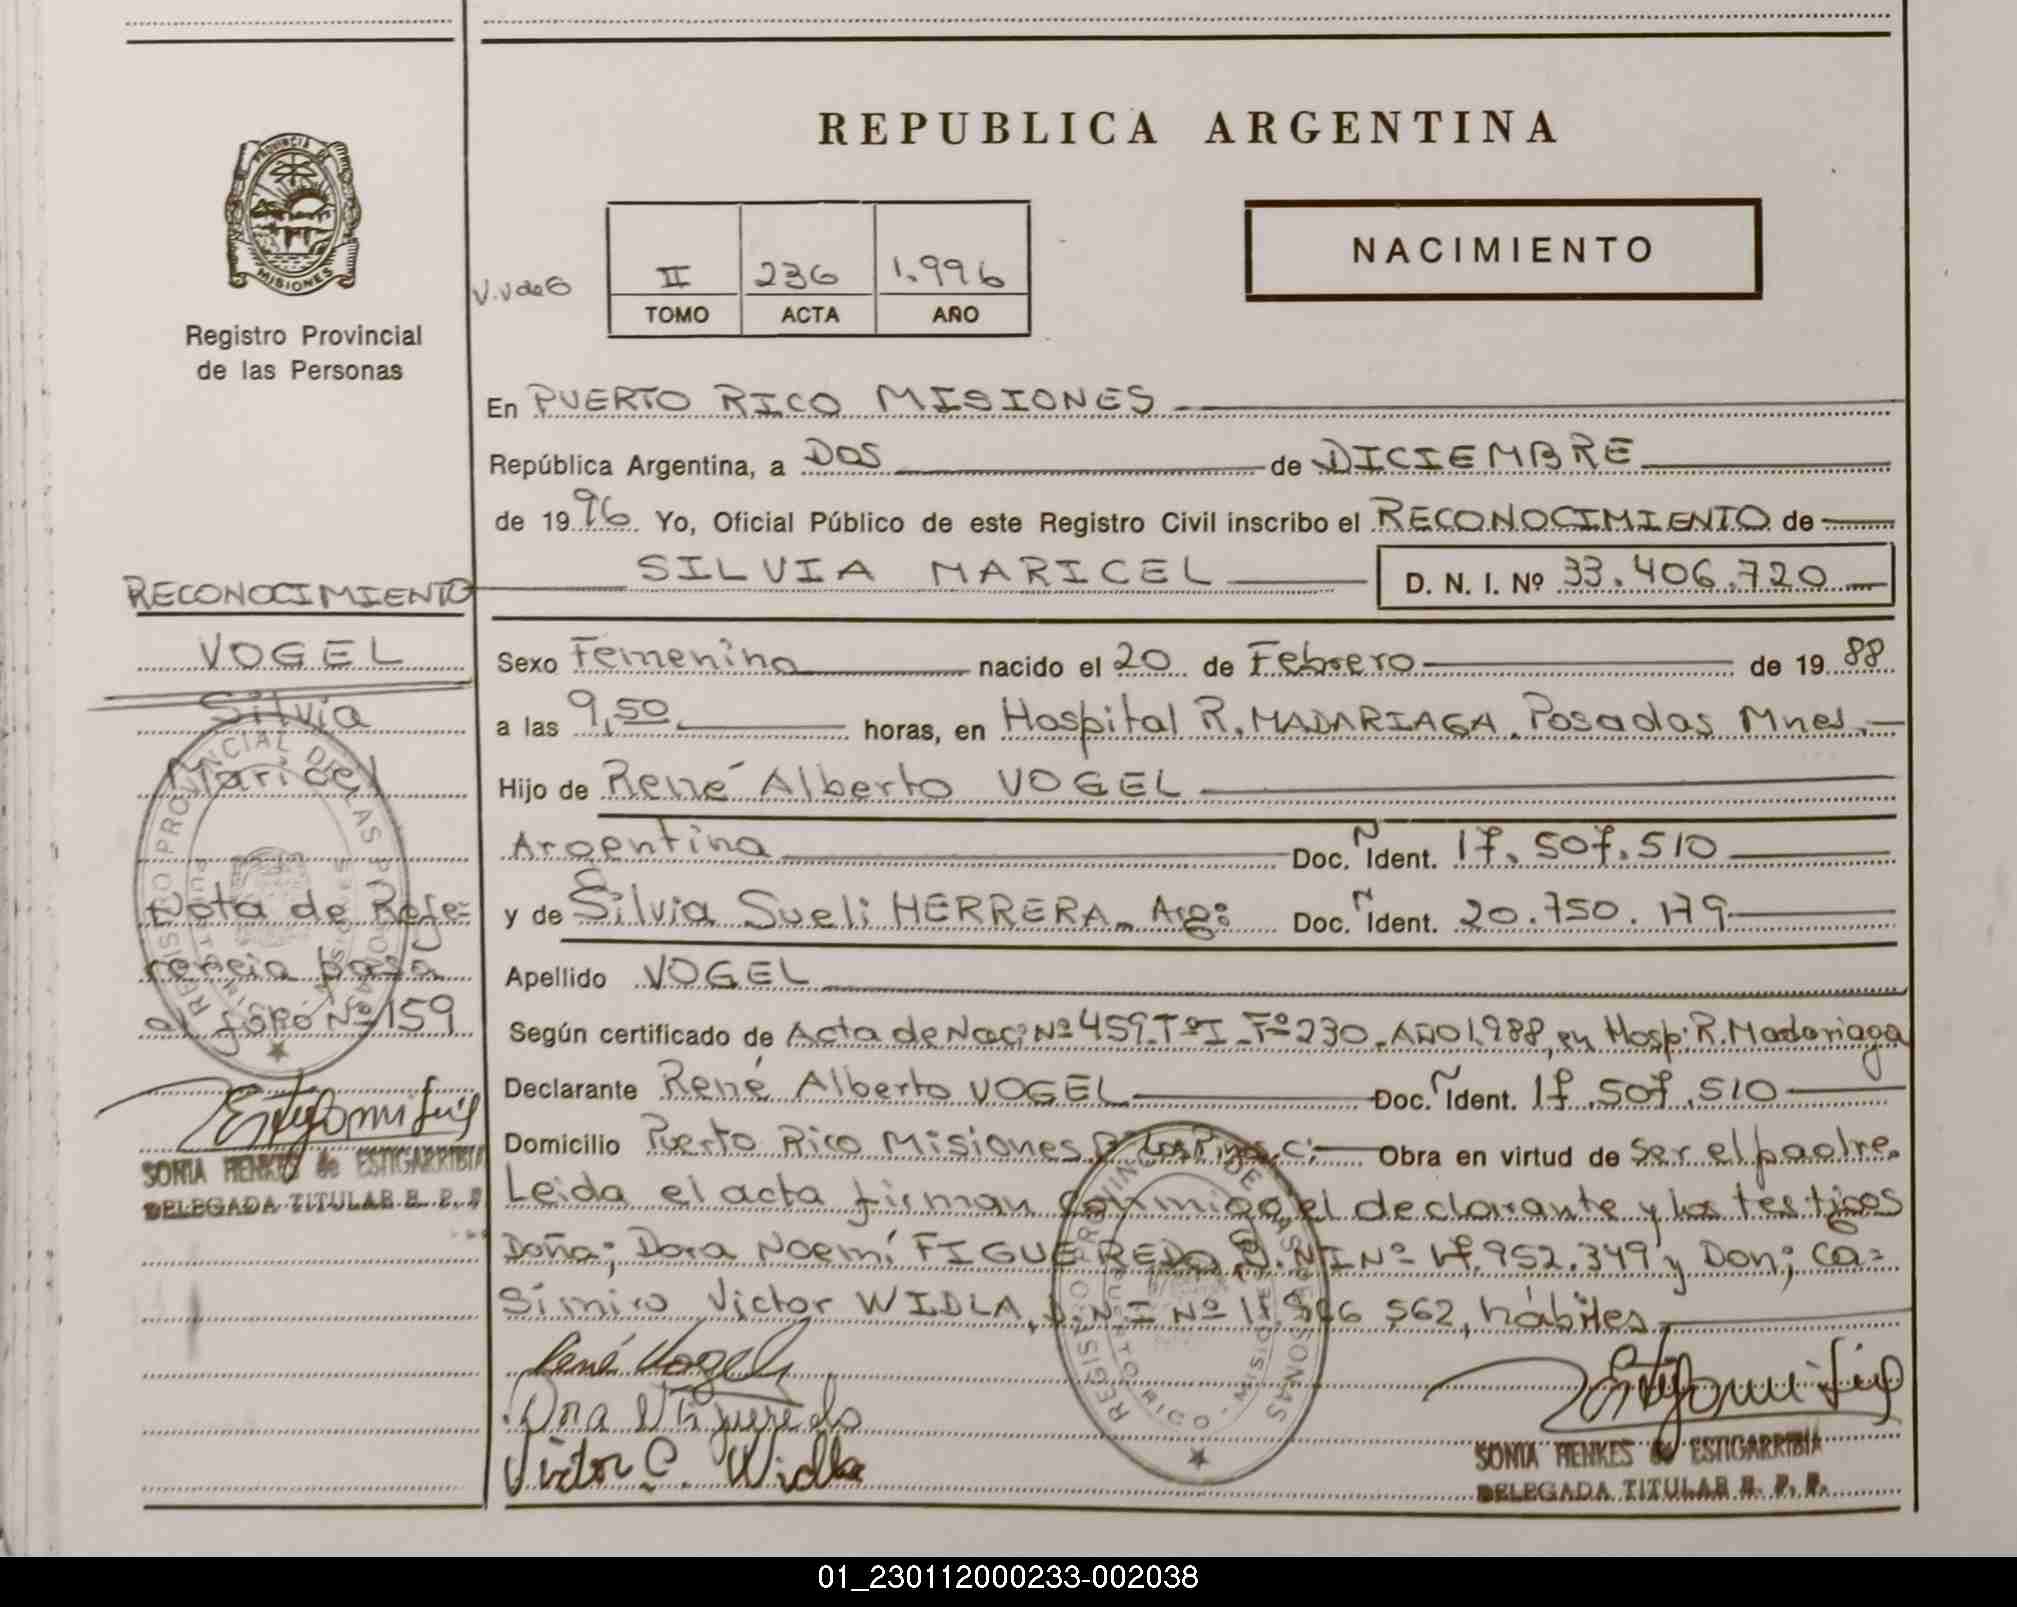 REPUBLICA ARGENTINA
PROVINCIA DE
MISIONES
Registro Provincial
de las Personas
NACIMIENTO
V.V de G
II 236 1.996
TOMO ACTA AÑO
En PUERTO RICO MISIONES
República Argentina, a DOS de DICIEMBRE
de 1996 Yo, Oficial Público de este Registro Civil inscribo el RECONOCIMIENTO de
SILVIA MARICEL D. N. I. Nº 33.406.720
Sexo Femenino nacido el 20 de Febrero de 1988
a las 9,50 horas, en Hospital R. MADARIAGA. Posadas Mnes.
Hijo de René Alberto VOGEL
Argentina Doc. N Ident. 17.507.510
y de Silvia Sueli HERRERA Arg: Doc. N Ident. 20.750.179
Apellido VOGEL
Según certificado de Acta de Nac: Nº 459-Tº I-Fº 230-AÑO 1.988, en Hosp. R. Madariaga
Declarante René Alberto VOGEL Doc. N Ident. 17.507.510
Domicilio Puerto Rico Misiones Obra en virtud de ser el padre.
Leida el acta firman conmigo el declarante y los testigos
Doña; Dora Noemí FIGUEREDO D.N.I Nº 17.952.349 y Don; Ca=
simiro Victor WIDLA, D.N.I Nº 562, hábiles
René Vogel
Dora N Figueredo
Victor C. Widla
SONIA HENKES de ESTIGARRIBIA
DELEGADA TITULAR R. P. P.
REGISTRO PROVINCIAL DE LAS PERSONAS
PUERTO RICO - MISIONES
RECONOCIMIENTO
VOGEL
Silvia
Maricel
Nota de Refe=
rencia pasa
al folio Nº 159
REGISTRO PROVINCIAL DE LAS PERSONAS
SONIA HENKES de ESTIGARRIBIA
DELEGADA TITULAR R. P. P.
01_230112000233-002038